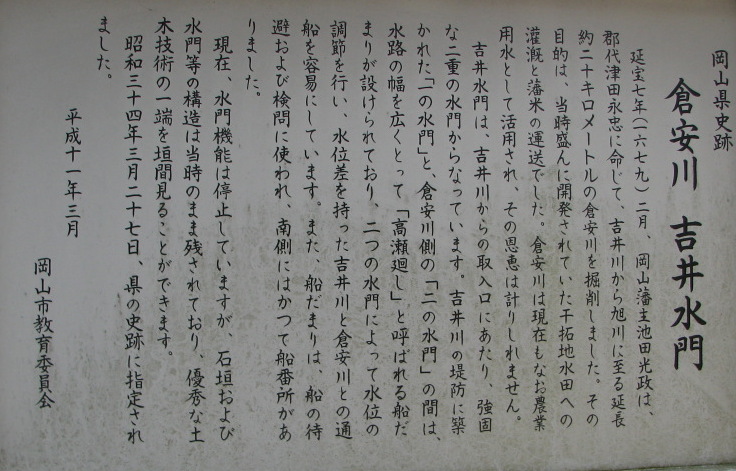 岡山県史跡
倉安川 吉井水門
延宝七年（一六七九）二月、岡山藩主池田光政は、
郡代津田永忠に命じて、吉井川から旭川に至る延長
約二十キロメートルの倉安川を掘削しました。その
目的は、当時盛んに開発されていた干拓地水田への
灌漑と藩米の運送でした。倉安川は現在もなお農業
用水として活用され、その恩恵は計りしれません。
吉井水門は、吉井川からの取入口にあたり、強固
な二重の水門からなっています。吉井川の堤防に築
かれた「一の水門」と、倉安川側の「二の水門」の間は、
水路の幅を広くとって「高瀬廻し」と呼ばれる船だ
まりが設けられており、二つの水門によって水位の
調節を行い、水位差を持った吉井川と倉安川との通
船を容易にしています。また、船だまりは、船の待
避および検問に使われ、南側にはかつて船番所があ
りました。
現在、水門機能は停止していますが、石垣および
水門等の構造は当時のまま残されており、優秀な土
木技術の一端を垣間見ることができます。
昭和三十四年三月二十七日、県の史跡に指定され
ました。
平成十一年三月
岡山市教育委員会